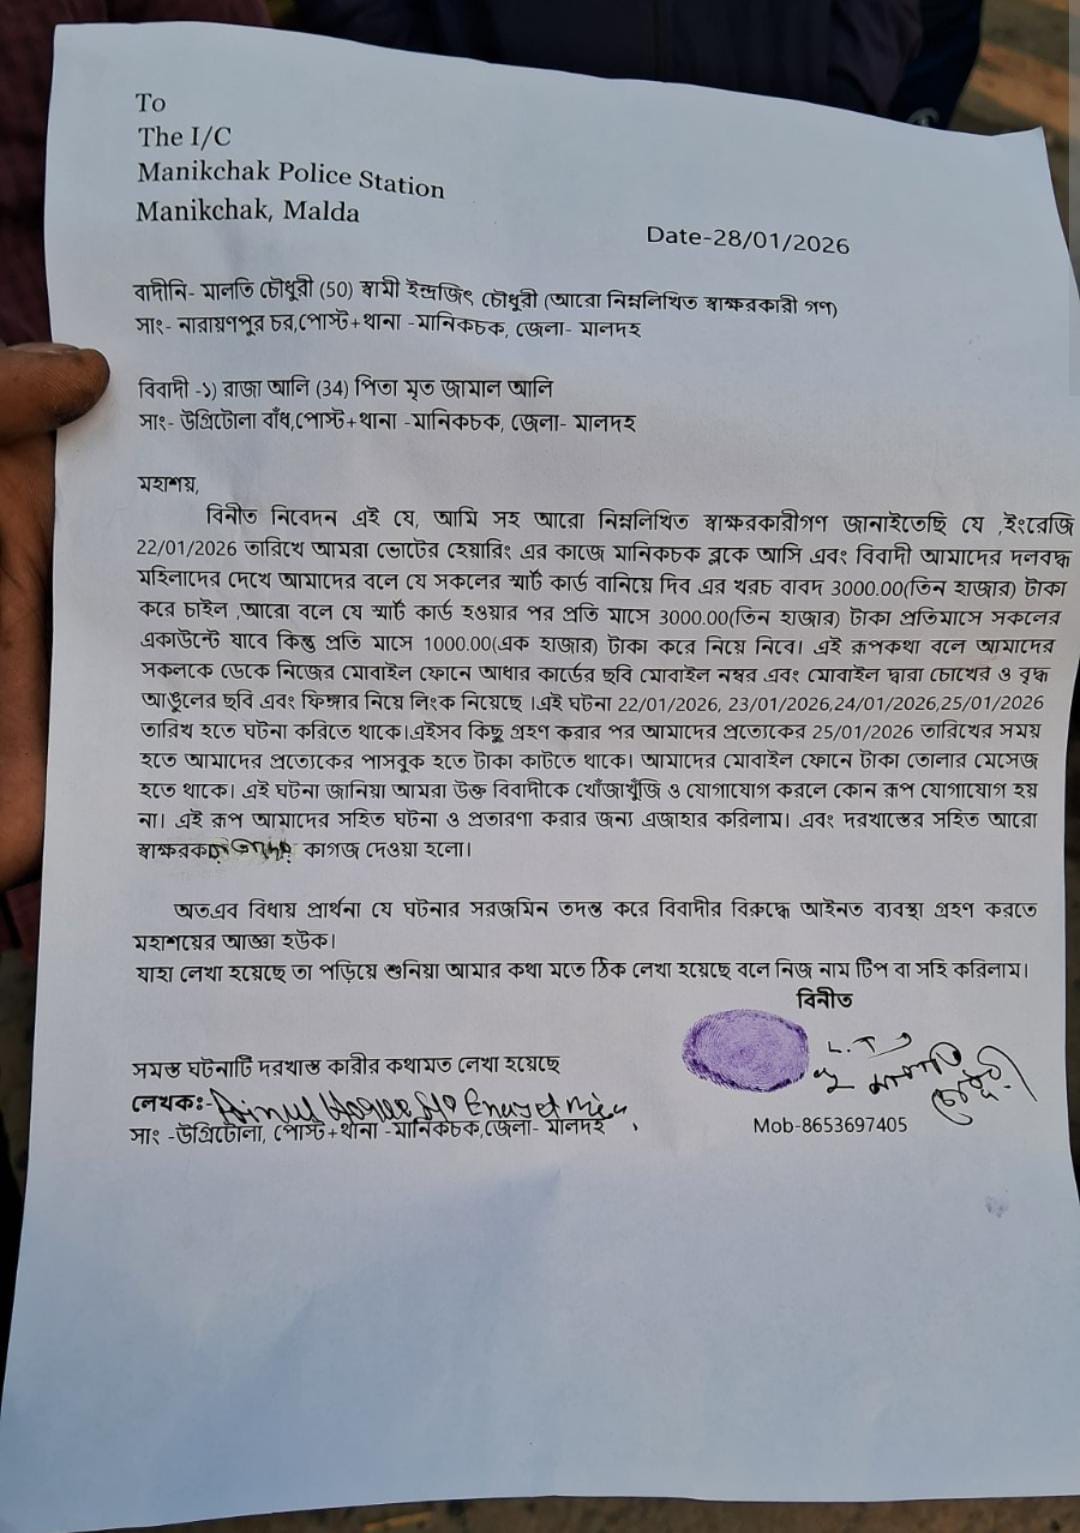 To
The I/C
Manikchak Police Station
Manikchak, Malda
Date-28/01/2026
বাদীনি- মালতি চৌধুরী (50) স্বামী ইন্দ্রজিৎ চৌধুরী (আরো নিম্নলিখিত স্বাক্ষরকারী গণ)
সাং- নারায়ণপুর চর,পোস্ট+থানা -মানিকচক, জেলা- মালদহ
বিবাদী -১) রাজা আলি (34) পিতা মৃত জামাল আলি
সাং- উগ্রিটোলা বাঁধ,পোস্ট+থানা -মানিকচক, জেলা- মালদহ
মহাশয়,
বিনীত নিবেদন এই যে, আমি সহ আরো নিম্নলিখিত স্বাক্ষরকারীগণ জানাইতেছি যে ,ইংরেজি
22/01/2026 তারিখে আমরা ভোটের হেয়ারিং এর কাজে মানিকচক ব্লকে আসি এবং বিবাদী আমাদের দলবদ্ধ
মহিলাদের দেখে আমাদের বলে যে সকলের স্মার্ট কার্ড বানিয়ে দিব এর খরচ বাবদ 3000.00(তিন হাজার) টাকা
করে চাইল ,আরো বলে যে স্মার্ট কার্ড হওয়ার পর প্রতি মাসে 3000.00(তিন হাজার) টাকা প্রতিমাসে সকলের
একাউন্টে যাবে কিন্তু প্রতি মাসে 1000.00(এক হাজার) টাকা করে নিয়ে নিবে। এই রূপকথা বলে আমাদের
সকলকে ডেকে নিজের মোবাইল ফোনে আধার কার্ডের ছবি মোবাইল নম্বর এবং মোবাইল দ্বারা চোখের ও বৃদ্ধ
আঙুলের ছবি এবং ফিঙ্গার নিয়ে লিংক নিয়েছে ।এই ঘটনা 22/01/2026, 23/01/2026,24/01/2026,25/01/2026
তারিখ হতে ঘটনা করিতে থাকে।এইসব কিছু গ্রহণ করার পর আমাদের প্রত্যেকের 25/01/2026 তারিখের সময়
হতে আমাদের প্রত্যেকের পাসবুক হতে টাকা কাটতে থাকে। আমাদের মোবাইল ফোনে টাকা তোলার মেসেজ
হতে থাকে। এই ঘটনা জানিয়া আমরা উক্ত বিবাদীকে খোঁজাখুঁজি ও যোগাযোগ করলে কোন রূপ যোগাযোগ হয়
না। এই রূপ আমাদের সহিত ঘটনা ও প্রতারণা করার জন্য এজাহার করিলাম। এবং দরখাস্তের সহিত আরো
কাগজ দেওয়া হলো।
অতএব বিধায় প্রার্থনা যে ঘটনার সরজমিন তদন্ত করে বিবাদীর বিরুদ্ধে আইনত ব্যবস্থা গ্রহণ করতে
মহাশয়ের আজ্ঞা হউক।
যাহা লেখা হয়েছে তা পড়িয়ে শুনিয়া আমার কথা মতে ঠিক লেখা হয়েছে বলে নিজ নাম টিপ বা সহি করিলাম।
বিনীত
L.T
মালতি
চৌধুরী
সমস্ত ঘটনাটি দরখাস্ত কারীর কথামত লেখা হয়েছে
লেখকঃ-
সাং -উগ্রিটোলা, পোস্ট+থানা -মানিকচক,জেলা- মালদহ
Mob-8653697405